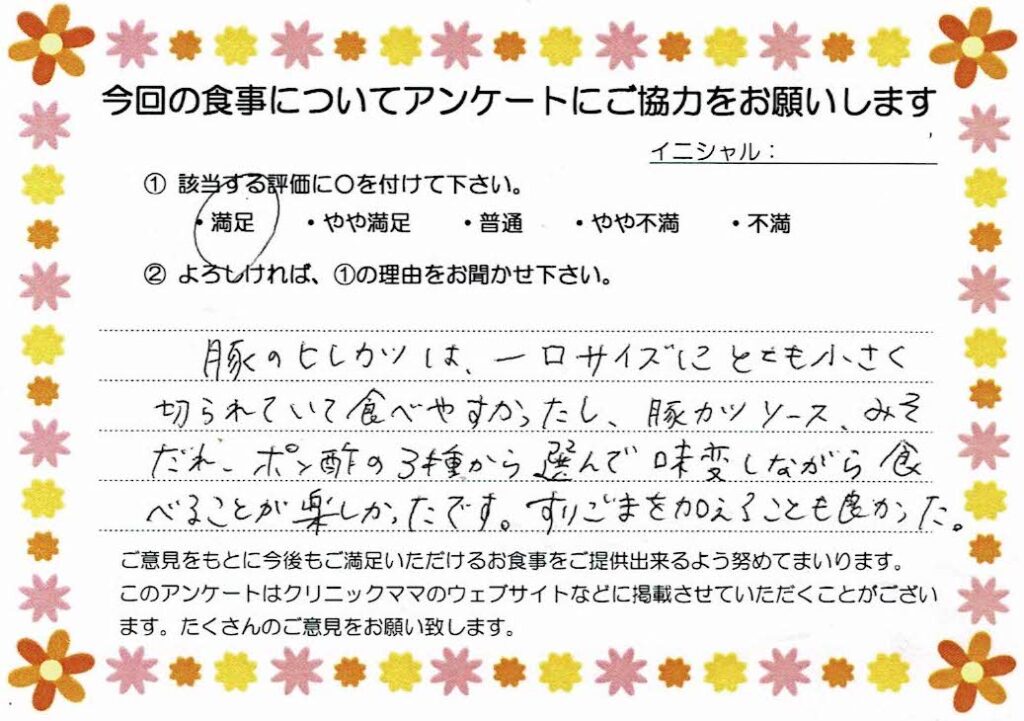 今回の食事についてアンケートにご協力をお願いします
イニシャル：
① 該当する評価に〇を付けて下さい。
・満足 ・やや満足 ・普通 ・やや不満 ・不満
② よろしければ、①の理由をお聞かせ下さい。
豚のヒレカツは、一口サイズにとても小さく
切られていて食べやすかったし、豚カツソース、みそ
だれ、ポン酢の3種から選んで味変しながら食
べることが楽しかったです。すりごまを加えることも良かった。
ご意見をもとに今後もご満足いただけるお食事をご提供出来るよう努めてまいります。
このアンケートはクリニックママのウェブサイトなどに掲載させていただくことがござい
ます。たくさんのご意見をお願い致します。